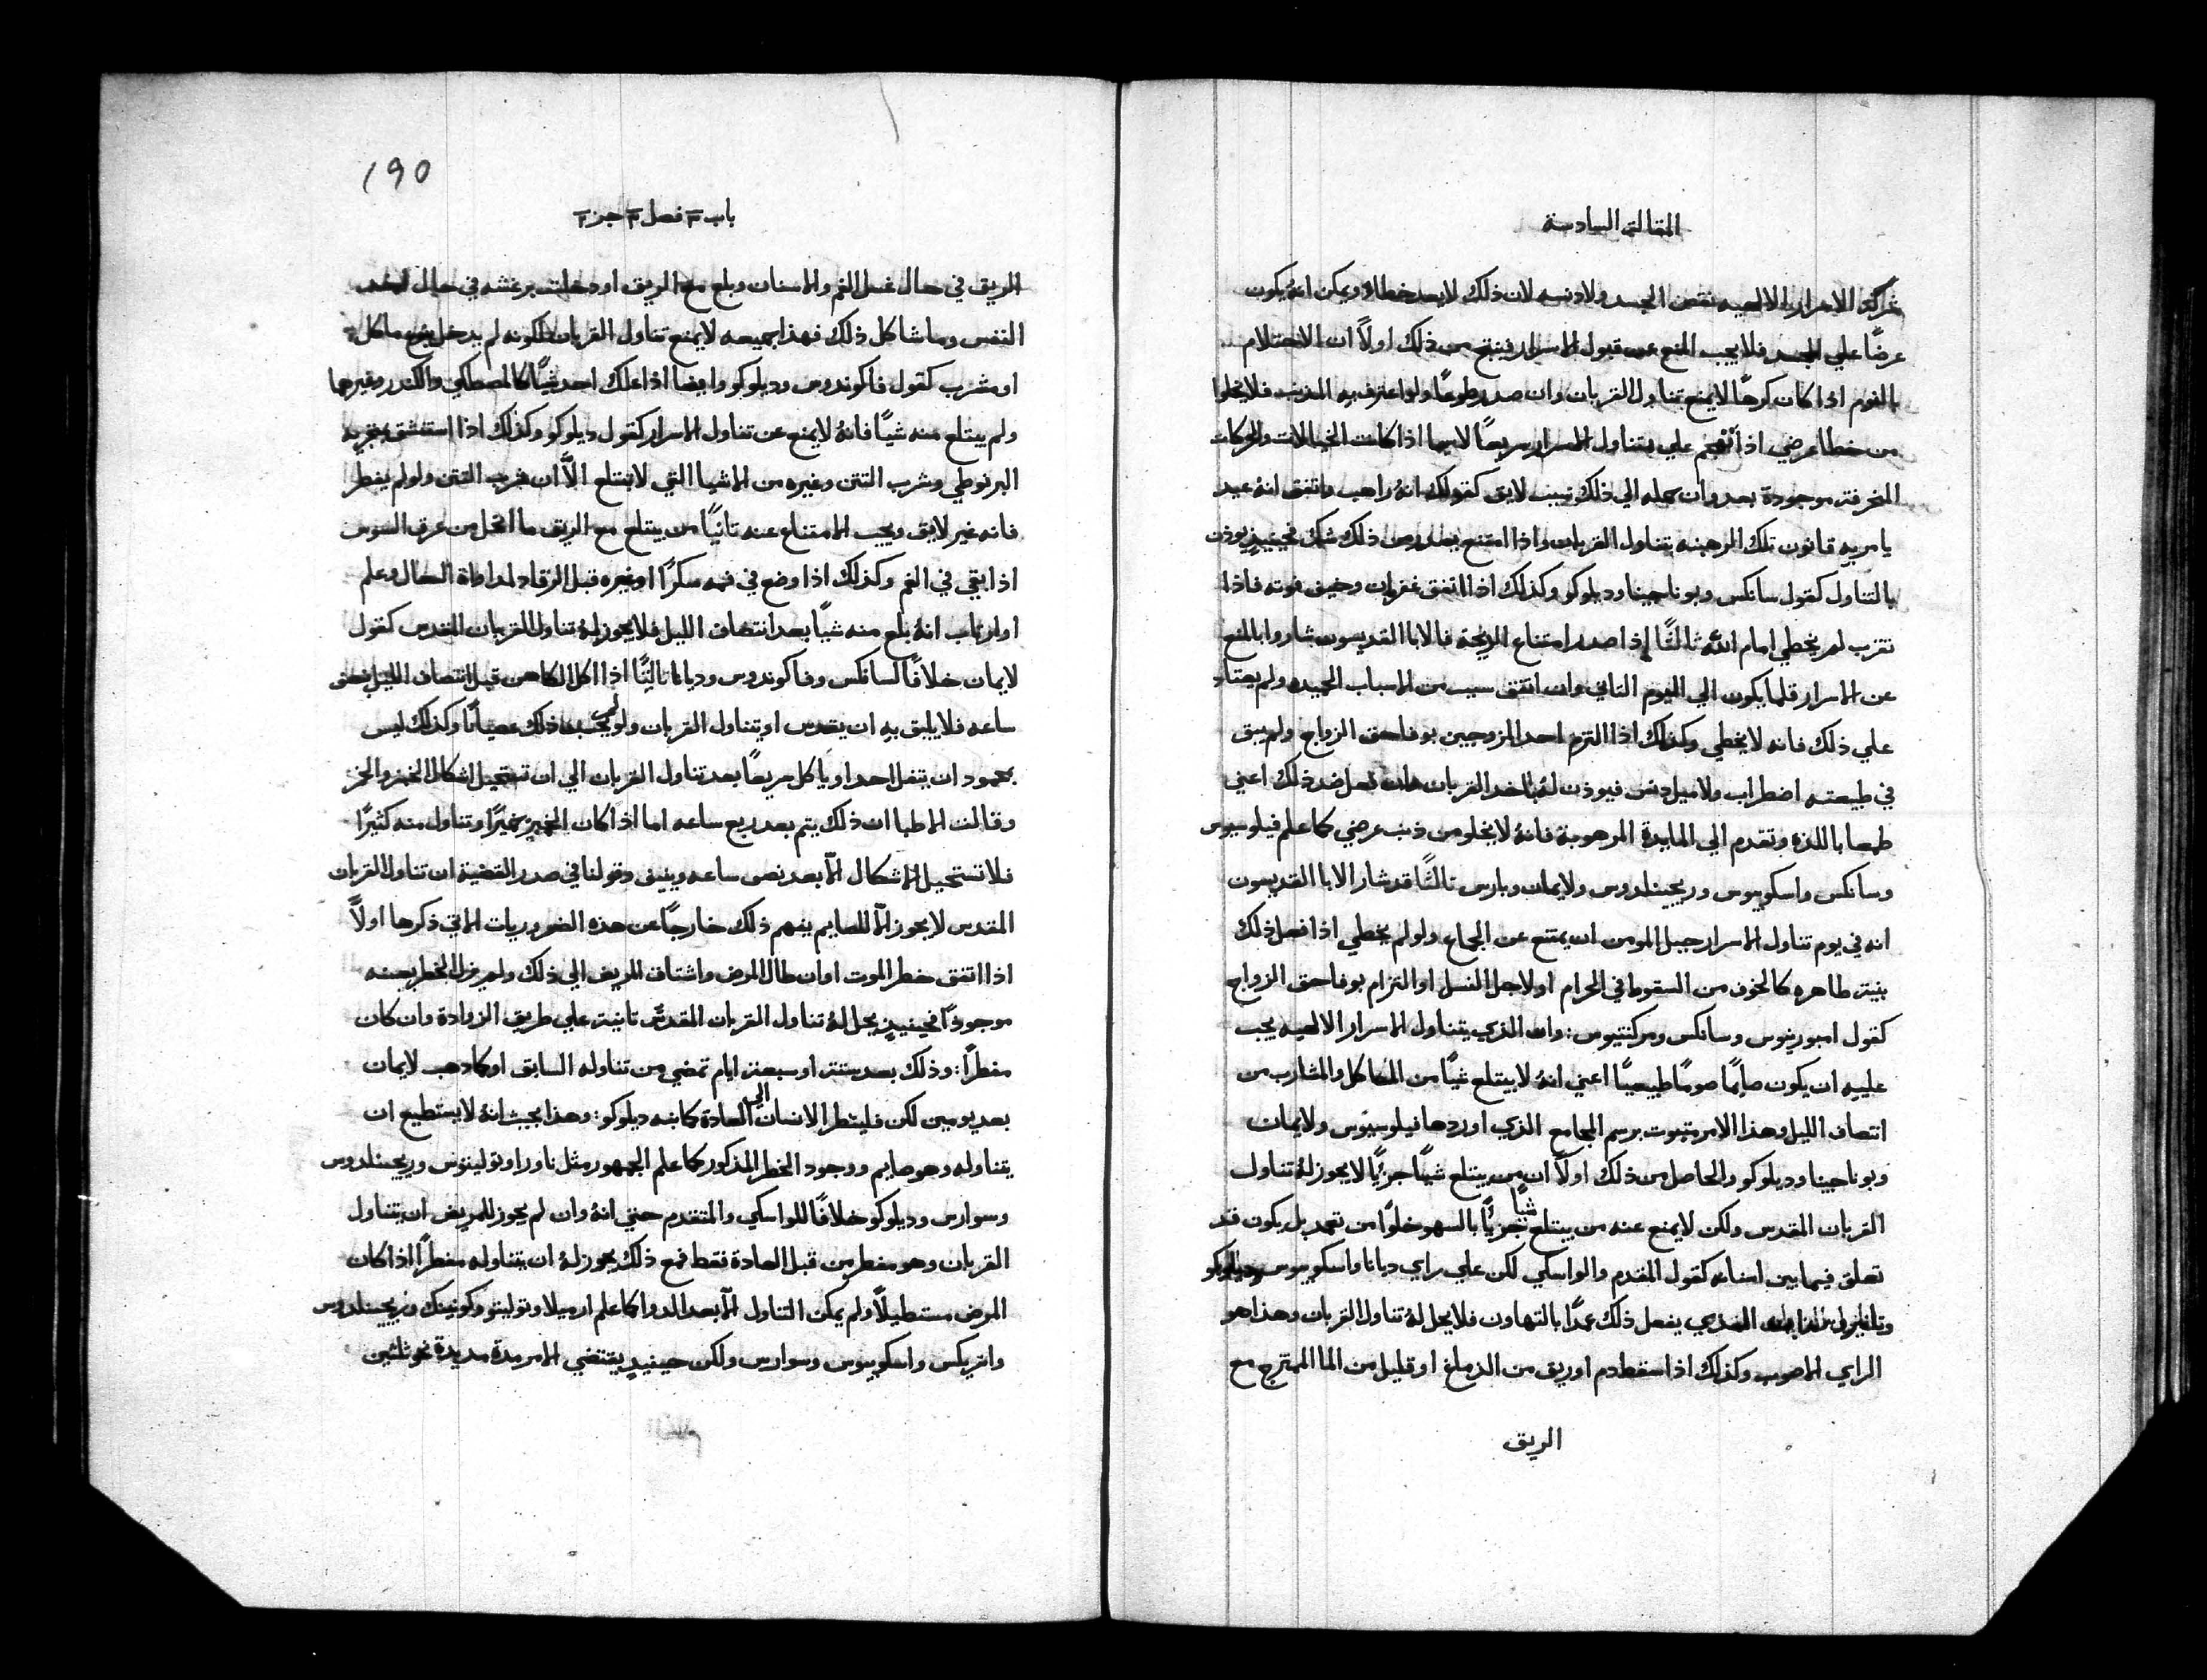 المقالة السادسة
الاسرار الالهيه نقص الجسد ولا دنسه لان ذلك لا يعد خطاء ويمكن انهُ يكون
عرضًا علي الجسد فلا يجب المنع عن قبول الاسرار فينتج من ذلك اولاً ان الاحتلام
بالنوم اذا كان كرهًا لا يمنع تناول القربان وان صدر طوعًا ولو اعترف به المذنب فلا يخلوا
من خطا عرضي اذا تناول الاسرار سريعًا لا سيما اذا كانت الخيالات والحركات
المخرفة موجودة بعد وان حمله الي ذلك سبب لايق كقولك انهُ راهب واتفق انهُ عيد
يامر به قانون تلك الرهبنه بتناول القربان واذا امتنع يصدر من ذلك شك فحينيذٍ يوذن
بالتناول كقول سانكس وبوناجينا وديلوكو وكذلك اذا اتفق غفران وخيف فوته فاذا
تقرب لم يخطي امام الله ثالثًا اذا صدر امتناع الزيجة فالابا القديسون شاروا بالمنع
عن الاسرار قلما يكون الي اليوم الثاني وان اتفق سبب من الاسباب الحميده ولم يعتاد
علي ذلك فانه لا يخطي وكذلك اذا التزم احد المزوجين بوفا حق الزواج ولم يبق
في طبيعته اضطراب ولا ميل دنس فيوذن لهُ باخذ القربان فعل ضد ذلك اعني
طمعا باللذة وتقدم الي المايدة المرهوبة فانهُ لا يخلو من ذنب عرضي كما علم فيلوسيوس
وسانكس واسكوبيوس وريجينلدوس ولايمان وبارس ثالثًا قد شار الابا القديسون
انه في يوم تناول الاسرار جبل المومن ان يمتنع عن الجماع ولو لم يخطي اذا فعل ذلك
بنية طاهره كالخوف من السقوط في الحرام او لاجل النسل او التزام بوفا حق الزواج
كقول امبورينوس وسانكس ومركنتيوس: وان الذي يتناول الاسرار الالهيه يجب
عليه ان يكون صايمًا صومًا طبيعيًا اعني انهُ لا يبتلع شيًا من الماكل والمشارب من
انتصاف الليل وهذا الامر مثبوت برسم المجامع الذي اوردها فيلوسيوس ولايمان
وبوناجينا وديلوكو والحاصل من ذلك اولاً ان من يبتلع شيًا جزيًا لا يجوز لهُ تناول
القربان المقدس ولكن لا يمنع عنه من يبتلع شيًا جزيًا بالسهو خلوًا من تعمد بل يكون قد
تعلق فيما بين اسنانه كقول المقدم والواسكي لكن علي راي ديانا واسكوبيوس وديلوكو
الذي يفعل ذلك عمدًا بالتهاون فلا يحل لهُ تناول القربان وهذا هو
الراي الاصوب وكذلك اذا سقط دم او ريق من الدماغ او قليل من الما الممتزج مع
الريق
190
باب ٣ فصل ٣ جز ٢
الريق في حال غسل الفم والاسنان وبلع مع الريق او دخلت برغشه في حال
النفس وما شاكل ذلك فهذا جميعه لا يمنع تناول القربان لكونه لم يدخل بنوع ماكل
او مشرب كقول فاكوندوس وديلوكو وايضا اذا علك احد شيًا كالمصطكي والكندر وغيرهما
ولم يبتلع منه شيًا فانهُ لا يمنع عن تناول الاسرار كقول ديلوكو وكذلك اذا استنشق
البرنوطي وشرب التتن وغيره من الاشيا التي لا تبتلع الاَّ ان شرب التتن ولو لم يفطر
فانه غير لايق ويجب الامتناع عنه ثانيًا من يبتلع مع الريق ما انحل من عرق السوس
اذا بقي في الفم وكذلك اذا وضع في فمه سكرًا او غيره قبل الرقاد لمداواة السعال وعلم
او ارتاب انهُ بلع منه شيًا بعد انتصاف الليل فلا يجوز لهُ تناول القربان المقدس كقول
لايمان خلافًا لسانكس وفاكوندوس وديانا ثالثًا اذا اكل الكاهن قبل انتصاف الليل بنصف
ساعه فلا يليق به ان يقدس او يتناول القربان ولو لم يحسب ذلك عصيانًا وكذلك ليس
بمحمود ان يتفل احد او ياكل سريعًا بعد تناول القربان الي ان تستحيل اشكال الخبز والخمر
وقالت الاطبا ان ذلك يتم بعد ربع ساعه اما اذا كان الخبز خميرًا وتناول منه كثيرًا
فلا تستحيل الاشكال الاَّ بعد نصف ساعه ونيف وقولنا في صدر القضية ان تناول القربان
المقدس لا يجوز الاَّ للصايم يفهم ذلك خارجًا عن هذه الضروريات الاتي ذكرها اولاً
اذا اتفق خطر الموت او ان طال المرض واشتاق المريض الي ذلك ولم يزل الخطر بعينه
موجودًا فحينيذٍ يحل لهُ تناول القربان المقدس ثانية علي طريق الزوادة وان كان
مفطرًا: وذلك بعد ستة او سبعة ايام تمضي من تناوله السابق او كما ذهب لايمان
بعد يومين لكن فلينظر الانسان الي العادة كما نبه ديلوكو: وهذا بحيث انهُ لا يستطيع ان
يتناوله وهو صايم ووجود الخطر المذكور كما علم الجمهور مثل ناورا وتوليتوس وريجينلدوس
وسوارس وديلوكو خلافًا للواسكي والمتقدم حتي انهُ وان لم يجوز للمريض ان يتناول
القربان وهو مفطر من قبل العادة فقط فمع ذلك يجوز لهُ ان يتناوله مفطرًا اذا كان
المرض مستطيلاً ولم يمكن التناول الاَّ بعد الدوا كما علم ارميلا وتوليتو وكونينك وريجينلدوس
وانريكس واسكوبيوس وسوارس ولكن حينيذٍ يقتضي الامر مدة مديدة نحو ثلثين